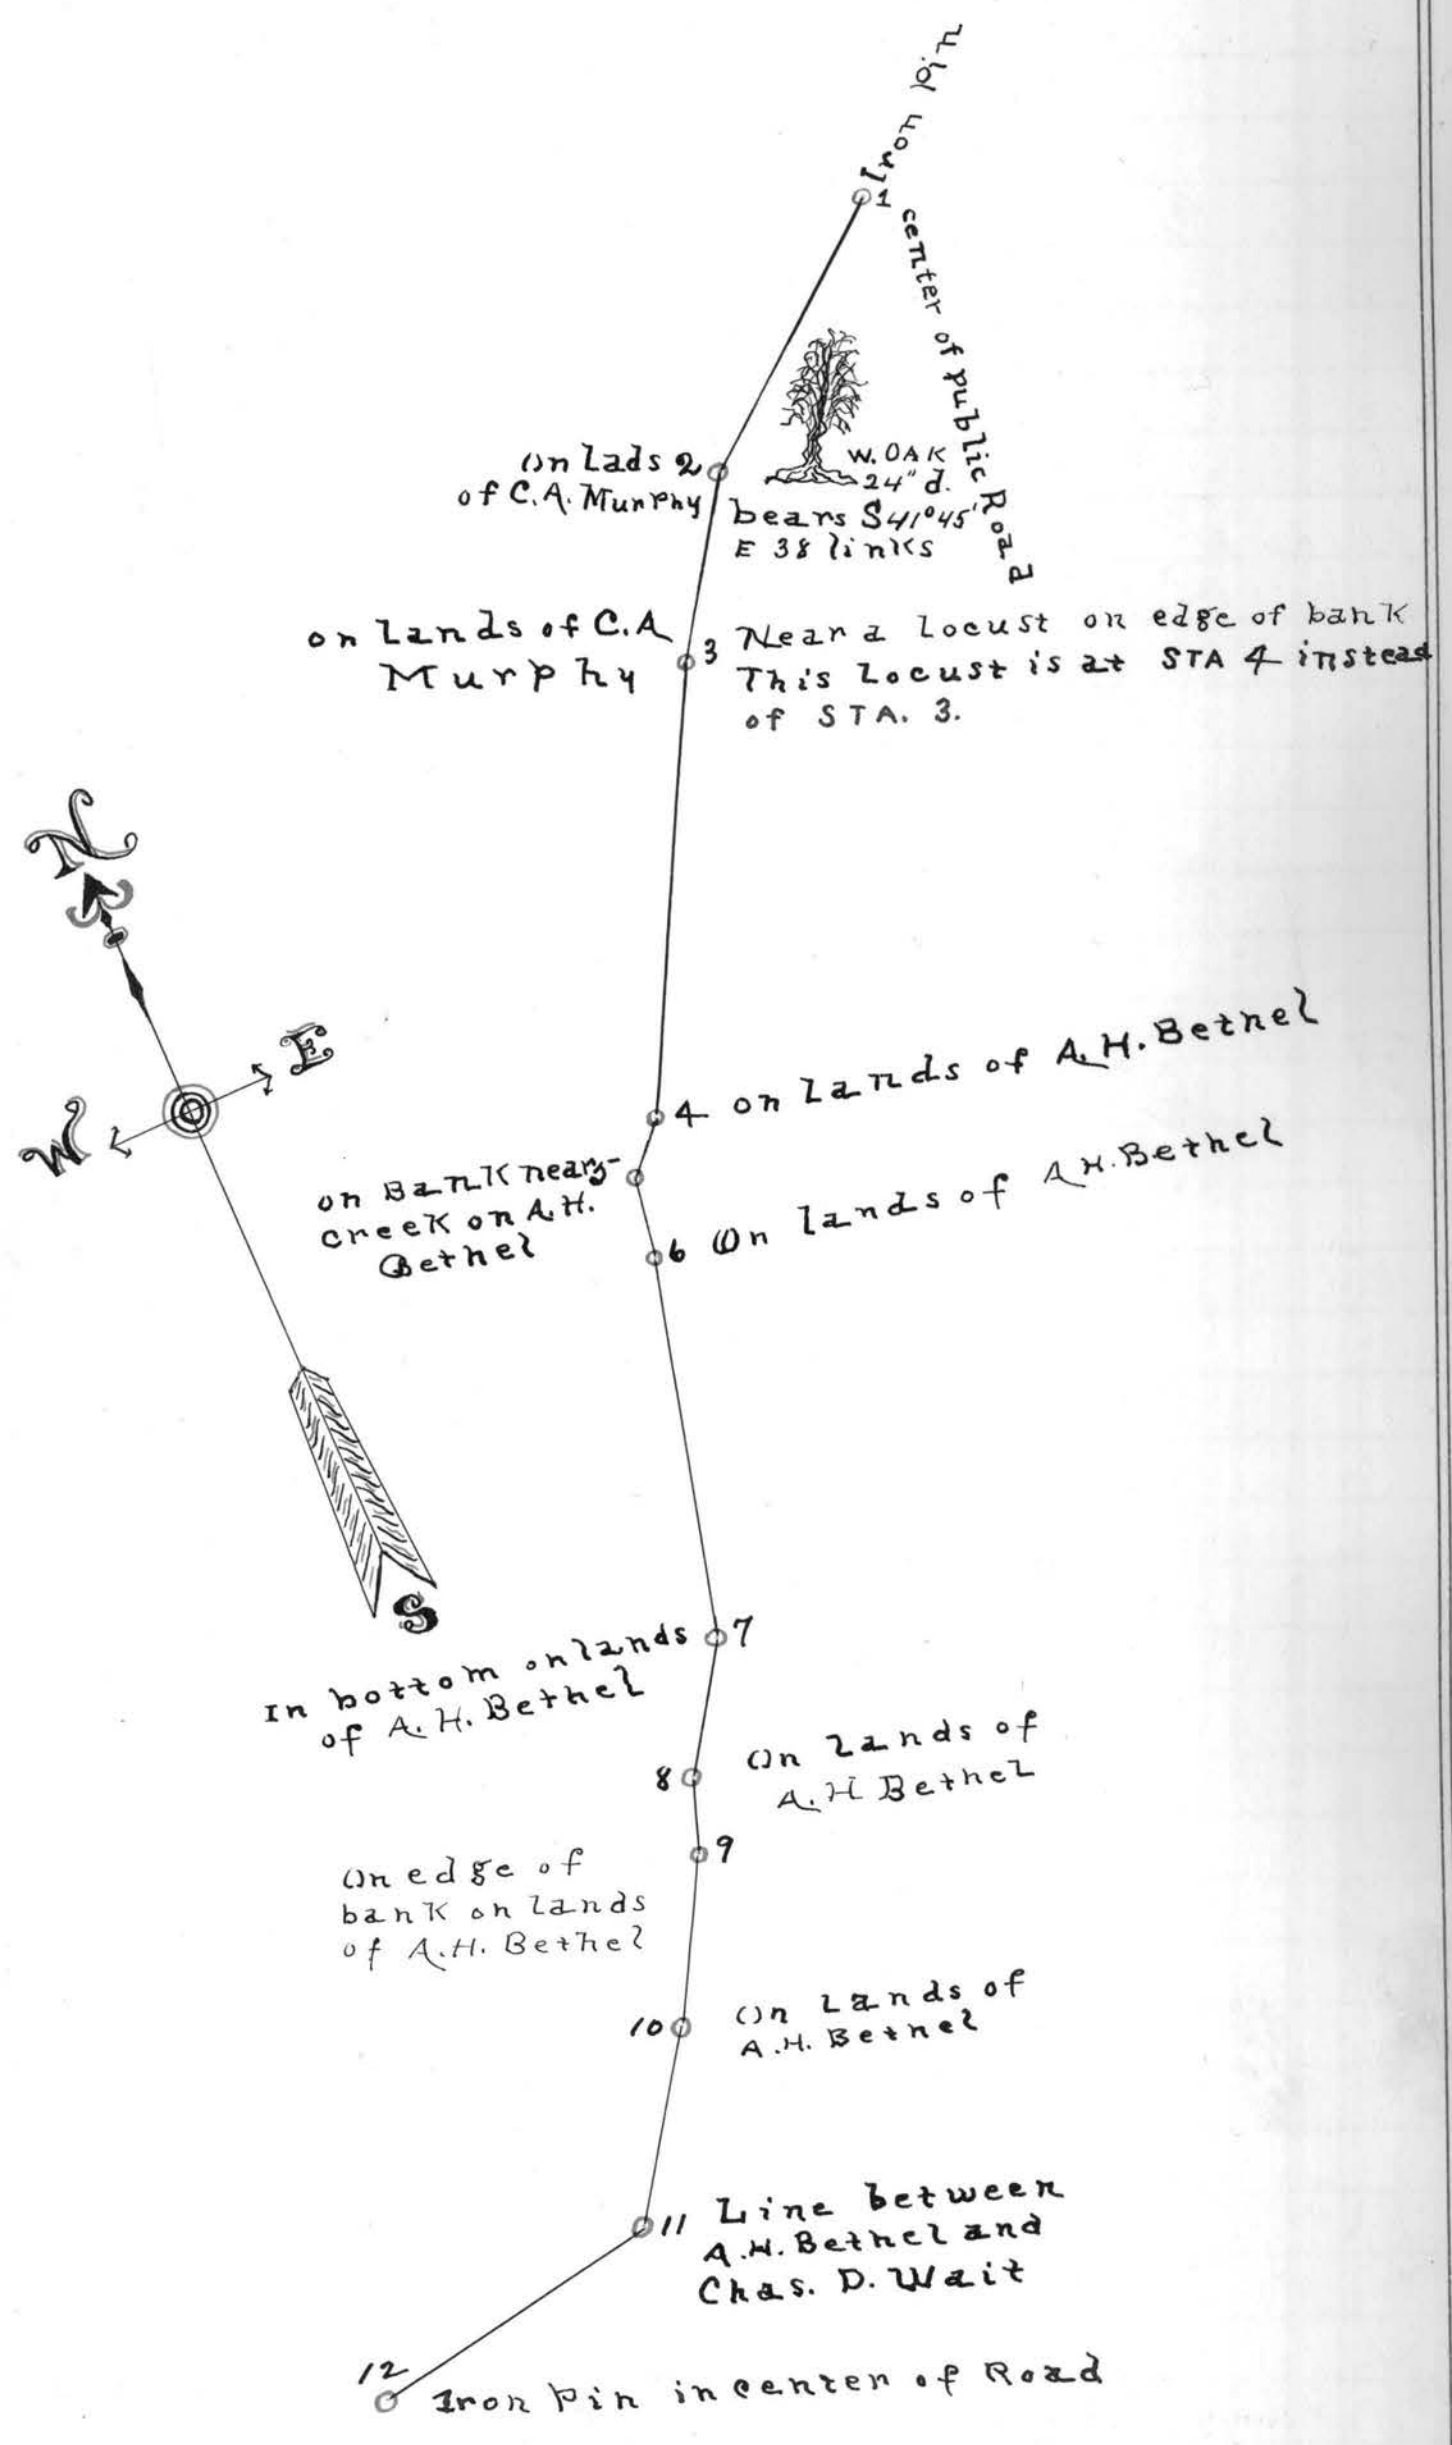 Iron pin
1
center of public Road
W. OAK
24" d.
bears S 41° 45'
E 38 links
On Lads 2
of C.A. Murphy
on Lands of C.A
Murphy
3 Near a Locust on edge of bank
This Locust is at STA 4 instead
of STA. 3.
N
E
W
S
4 on Lands of A.H. Bethel
on Bank near 5
creek on A.H.
Bethel
6 On lands of A H. Bethel
7
In bottom on lands
of A. H. Bethel
8
On lands of
A. H Bethel
9
On edge of
bank on lands
of A.H. Bethel
10
On Lands of
A.H. Bethel
11 Line between
A.H. Bethel and
Chas. D. Wait
12
Iron Pin in center of Road